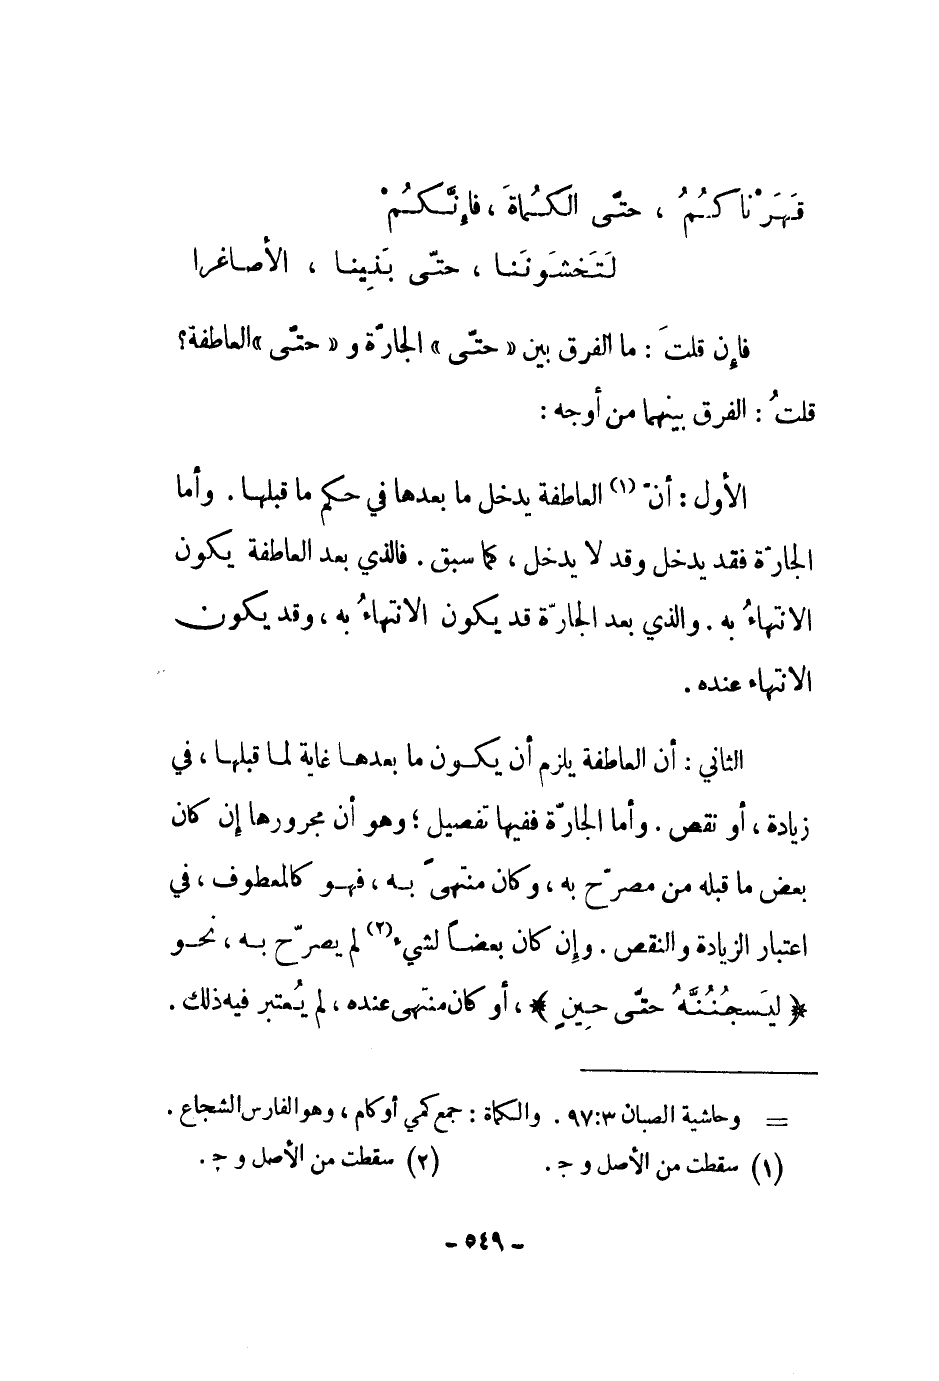 قَهَرْناكُمُ ، حتّى الكُماةَ ، فإنَّكُمْ
لَتَخشَونَنا ، حتّى بَنِينا ، الأصاغرا
فإن قلتَ : ما الفرق بين « حتّى » الجارّة و « حتّى »العاطفة؟
قلتُ : الفرق بينهما من أوجه :
الأول : أنّ (١) العاطفة يدخل ما بعدها في حكم ما قبلها . وأما
الجارّة فقد يدخل وقد لا يدخل ، كما سبق . فالذي بعد العاطفة يكون
الانتهاءُ به . والذي بعد الجارّة قد يكون الانتهاءُ به ، وقد يكون
الانتهاء عنده .
الثاني : أن العاطفة يلزم أن يكون ما بعدها غاية لما قبلها ، في
زيادة ، أو نقص . وأما الجارّة ففيها تفصيل ؛ وهو أن مجرورها إن كان
بعض ما قبله من مصرّح به ، وكان منتهىً به ، فهو كالمعطوف ، في
اعتبار الزيادة والنقص . وإن كان بعضاً لشيء (٢) لم يصرّح به ، نحو
﴿ ليَسجُنُنَّهُ حتّى حِينٍ ﴾ ، أو كان منتهى عنده ، لم يُعتبر فيه ذلك .
= وحاشية الصبان ٣ : ٩٧ . والكماة : جمع كمي أو كام ، وهو الفارس الشجاع .
(١) سقطت من الأصل و جـ . (٢) سقطت من الأصل و جـ .
- ٥٤٩ -